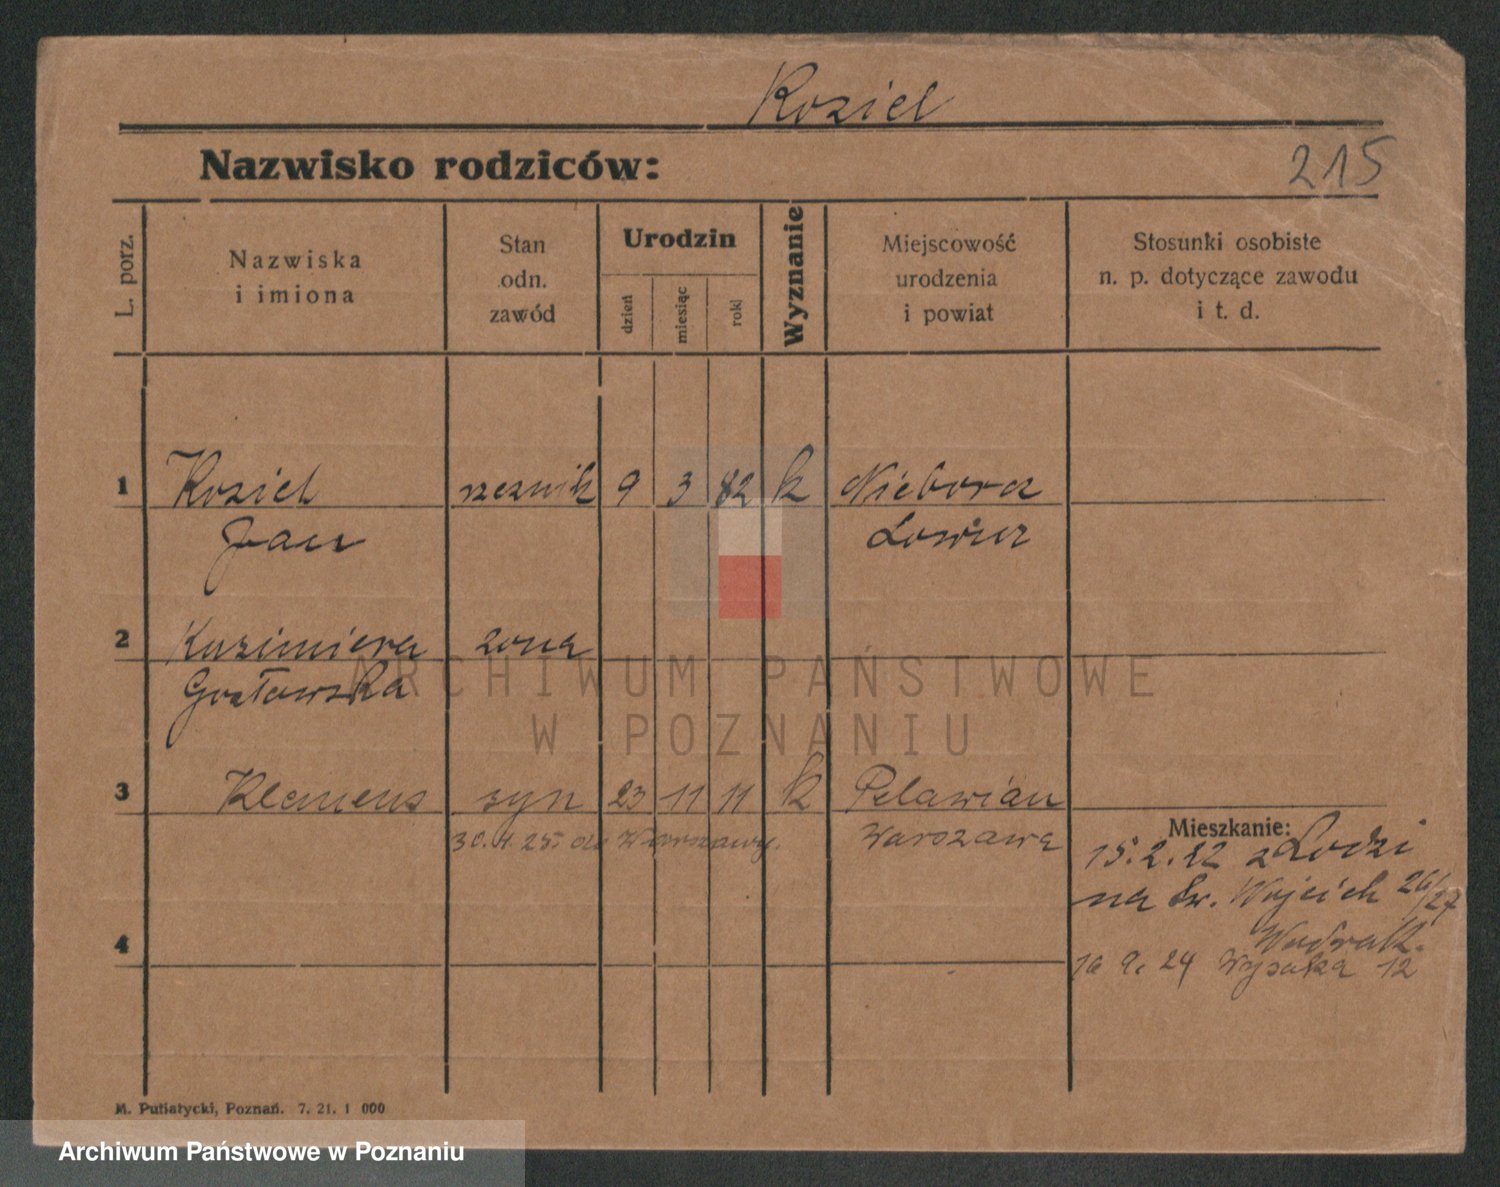 Koziel
Nazwisko rodziców:
215
L. porz.
Nazwiska
i imiona
Stan
odn.
zawód
Urodzin
dzień
miesiąc
rok
Wyznanie
Miejscowość
urodzenia
i powiat
Stosunki osobiste
n. p. dotyczące zawodu
i t. d.
1 Koziel rzeznik 9 3 82 k Niebora
Jan Łowicz
2 Kazimiera zona
Gozławska
ARCHIWUM PAŃSTWOWE
W POZNANIU
3 Klemens syn 23 11 11 k Pelawian
30.4.25 do Warszawy. Warszawa
Mieszkanie:
15.2.22 z Łodzi
na Św. Wojciech 26/27
4
16 9. 24 Wysoka 12
M. Putiatycki, Poznań. 7. 21. 1 000
Archiwum Państwowe w Poznaniu